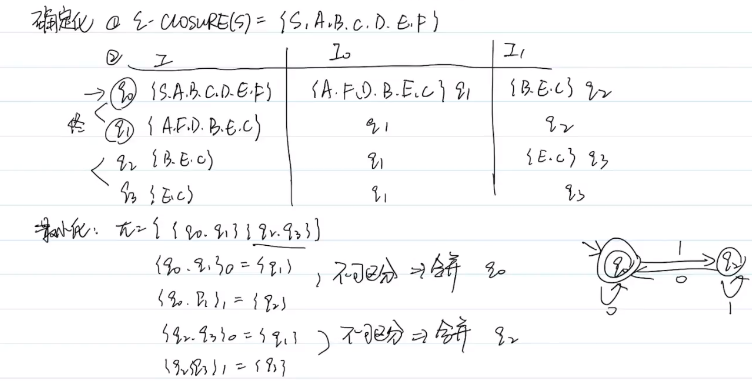 确定化 ① ε-CLOSURE(S) = {S.A.B.C.D.E.F}
② I I₀ I₁
→ q₀ {S.A.B.C.D.E.F} {A.F.D.B.E.C} q₁ {B.E.C} q₂
终 q₁ {A.F.D.B.E.C} q₁ q₂
q₂ {B.E.C} q₁ {E.C} q₃
q₃ {E.C} q₁ q₃
最小化: π = { {q₀.q₁} {q₂.q₃} }
{q₀.q₁}₀ = {q₁} , 不可区分 ⇒ 合并 q₀
{q₀.q₁}₁ = {q₂}
{q₂.q₃}₀ = {q₁} 不可区分 ⇒ 合并 q₂
{q₂q₃}₁ = {q₃}
q₀ 1 q₂
0
0 1